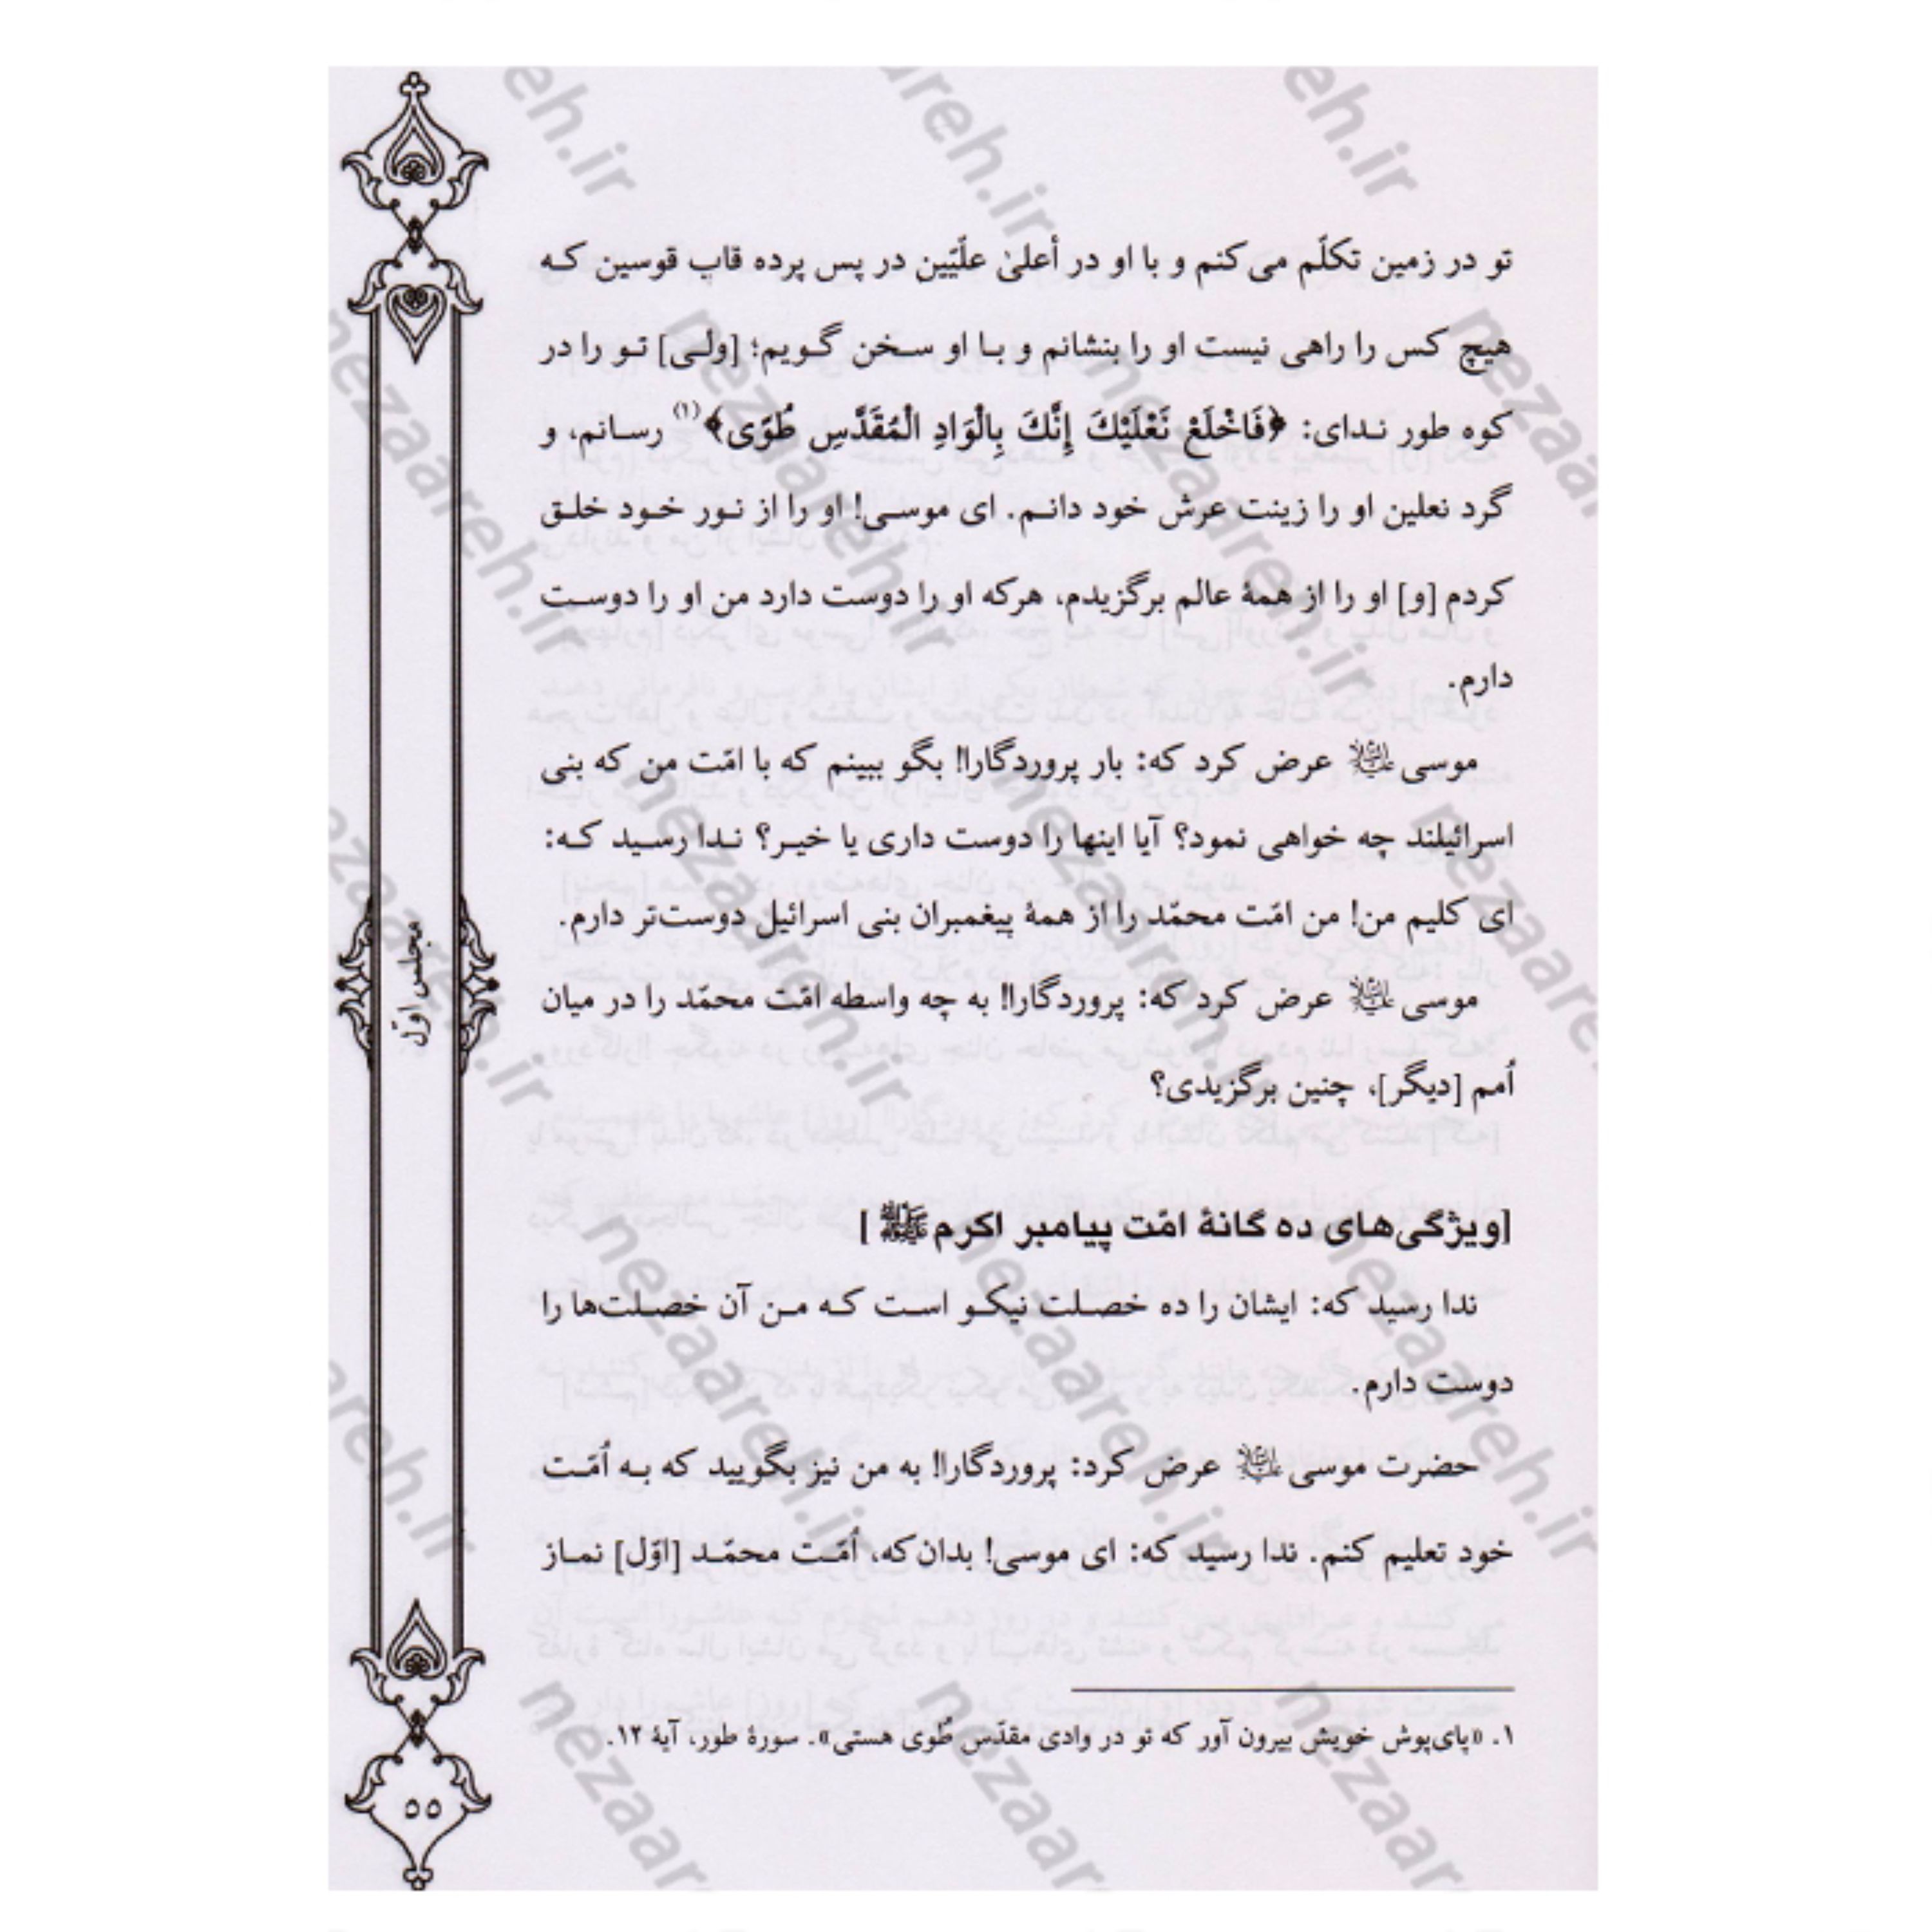 تو در زمین تکلّم می‌کنم و با او در أعلیٰ علّیّین در پس پرده قاب قوسین که
هیچ کس را راهی نیست او را بنشانم و با او سخن گویم؛ [ولی] تو را در
کوه طور ندای: ﴿فَاخْلَعْ نَعْلَيْكَ إِنَّكَ بِالْوَادِ الْمُقَدَّسِ طُوًى﴾(۱) رسانم، و
گرد نعلین او را زینت عرش خود دانم. ای موسی! او را از نور خود خلق
کردم [و] او را از همهٔ عالم برگزیدم، هرکه او را دوست دارد من او را دوست
دارم.
موسی علیه‌السلام عرض کرد که: بار پروردگارا! بگو ببینم که با امّت من که بنی
اسرائیلند چه خواهی نمود؟ آیا اینها را دوست داری یا خیر؟ ندا رسید که:
ای کلیم من! من امّت محمّد را از همهٔ پیغمبران بنی اسرائیل دوست‌تر دارم.
موسی علیه‌السلام عرض کرد که: پروردگارا! به چه واسطه امّت محمّد را در میان
اُمم [دیگر]، چنین برگزیدی؟
[ویژگی‌های ده گانهٔ امّت پیامبر اکرم ﷺ]
ندا رسید که: ایشان را ده خصلت نیکو است که من آن خصلت‌ها را
دوست دارم.
حضرت موسی علیه‌السلام عرض کرد: پروردگارا! به من نیز بگویید که به اُمّت
خود تعلیم کنم. ندا رسید که: ای موسی! بدان‌که، اُمّت محمّد [اوّل] نماز
۱. «پای‌پوش خویش بیرون آور که تو در وادی مقدّس طُوی هستی». سورهٔ طور، آیهٔ ۱۲.
مجلس اوّل
۵۵
nezaareh.ir